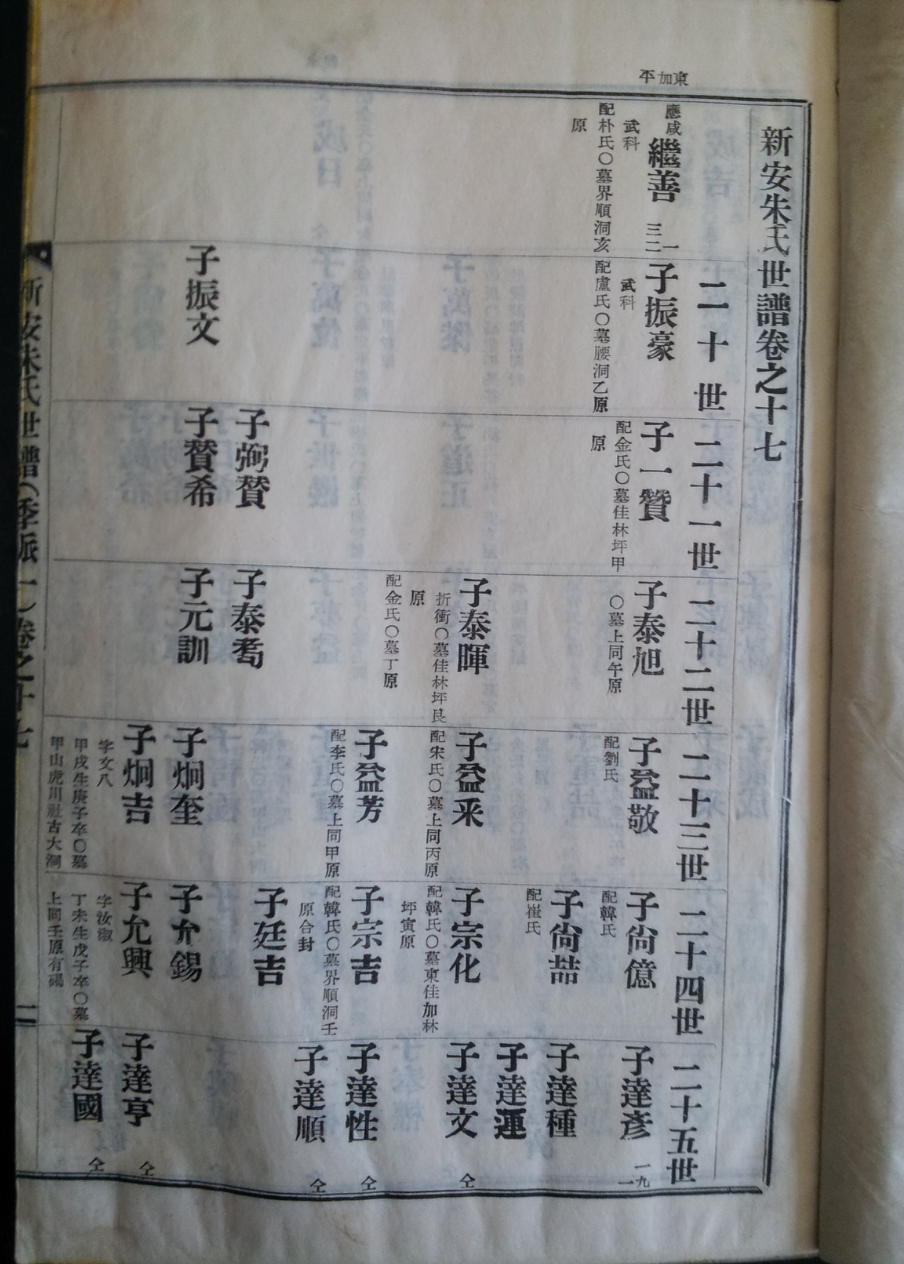 東加平
新安朱氏世譜卷之十七
應咸
繼善
三二一
武科
配朴氏〇墓界順洞亥
原
二十世
子振豪
武科
配盧氏〇墓腰洞乙原
子振文
二十一世
子一贊
配金氏〇墓佳林坪甲
原
子弼贊
子贊希
二十二世
子泰旭
〇墓上同午原
子泰暉
折衝〇墓佳林坪艮
原
配金氏〇墓丁原
子泰
子元訓
二十三世
子益敬
配劉氏
子益采
配宋氏〇墓上同丙原
子益芳
配李氏〇墓上同甲原
子炯奎
子炯吉
字文八
甲戌生庚子卒〇墓
甲山虎川社古大洞
二十四世
子尙億
配韓氏
子尙喆
配崔氏
子宗化
配韓氏〇墓東佳加林
坪寅原
子宗吉
配韓氏〇墓界順洞壬
原合封
子廷吉
子允錫
子允興
字汝淑
丁未生戊子卒〇墓
上同壬原有碣
二十五世
子達彥
一九一
子達種
子達運
子達文
仝
子達性
仝
子達順
仝
子達亨
仝
子達國
仝
新安朱氏世譜(季派一)卷之十七
一